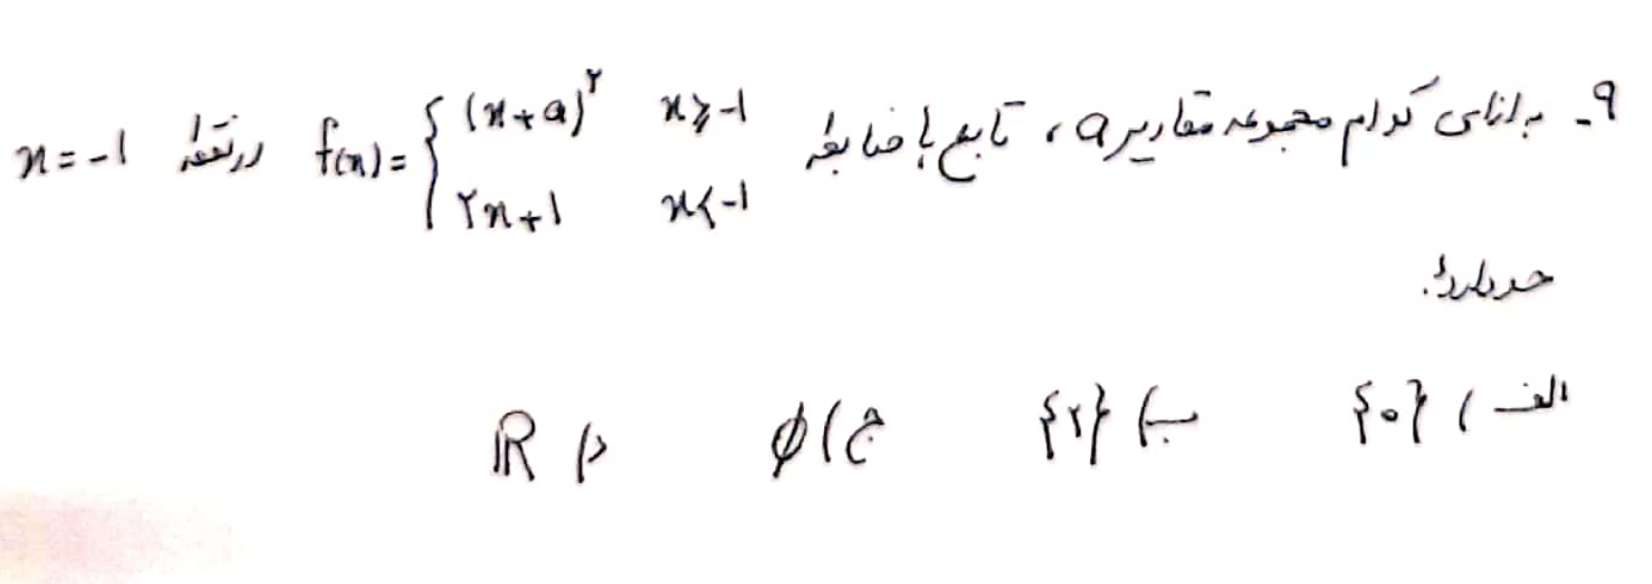 ۹- به ازای کدام مجموعه مقادیر a، تابع با ضابطه f(x)= { (x+a)^۲ x≥-۱ , ۲x+۱ x<-۱ در نقطه x=-۱
حد دارد؟
الف) {۰} ب) {۲} ج) ∅ د) ℝ